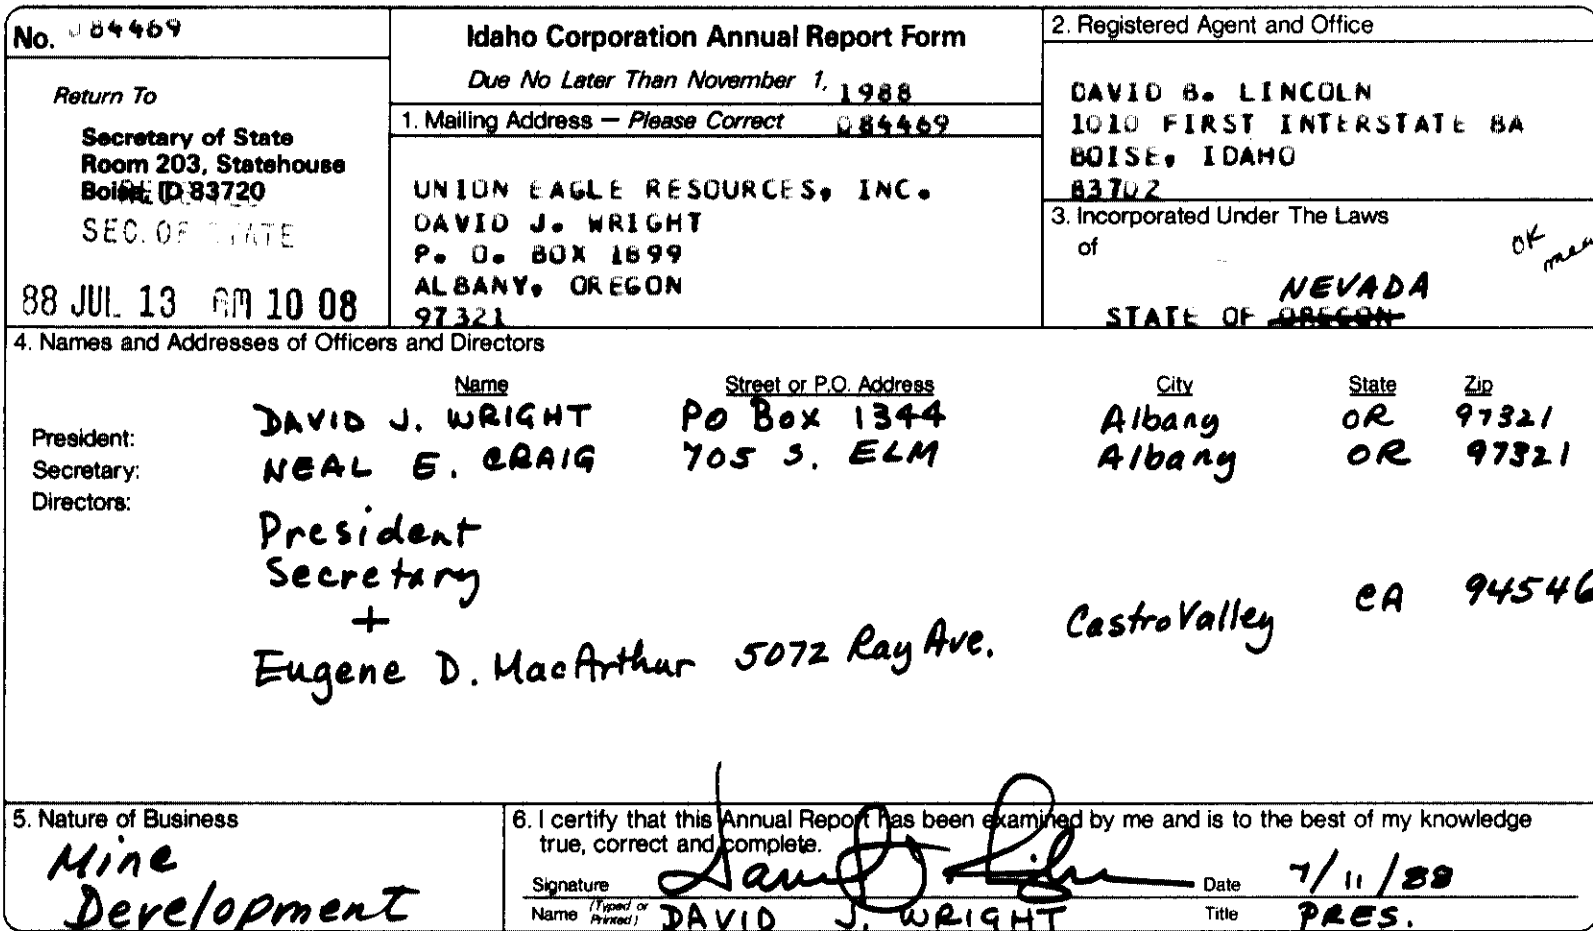 No. 084469
Return To
Secretary of State
Room 203, Statehouse
Boise, ID 83720
SEC. OF STATE
88 JUL 13 AM 10 08
Idaho Corporation Annual Report Form
Due No Later Than November 1, 1988
1. Mailing Address — Please Correct 084469
UNION EAGLE RESOURCES, INC.
DAVID J. WRIGHT
P. O. BOX 1899
ALBANY, OREGON
97321
2. Registered Agent and Office
DAVID B. LINCOLN
1010 FIRST INTERSTATE BA
BOISE, IDAHO
83702
3. Incorporated Under The Laws
of
OK
NEVADA
STATE OF OREGON
4. Names and Addresses of Officers and Directors
Name Street or P.O. Address City State Zip
President: DAVID J. WRIGHT PO Box 1344 Albany OR 97321
Secretary: NEAL E. CRAIG 705 S. ELM Albany OR 97321
Directors:
President
Secretary
+
Eugene D. MacArthur 5072 Ray Ave. Castro Valley CA 94546
5. Nature of Business
Mine
Development
6. I certify that this Annual Report has been examined by me and is to the best of my knowledge
true, correct and complete.
Signature Date 7/11/88
Name (Typed or Printed) DAVID J. WRIGHT Title PRES.